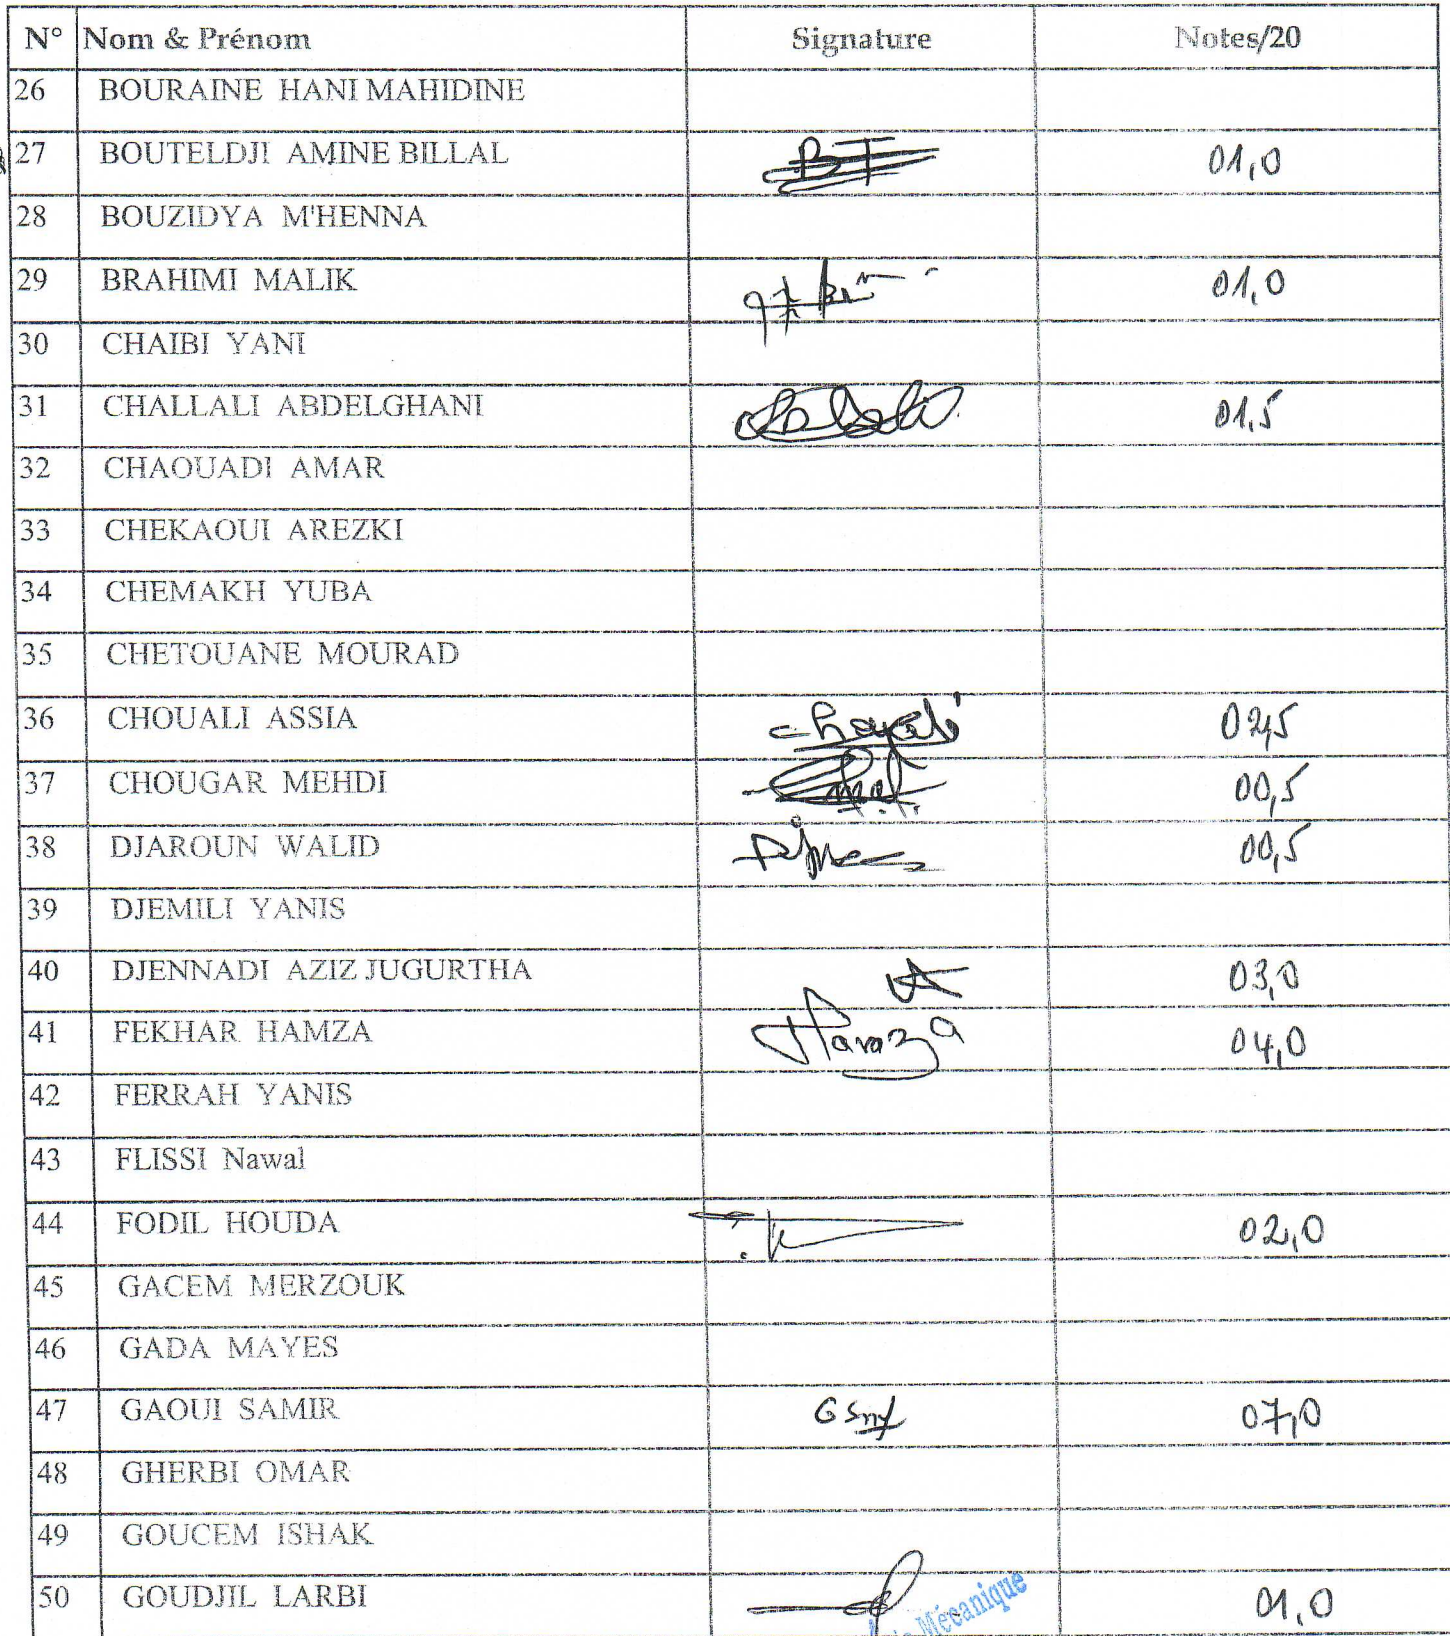 N° Nom & Prénom Signature Notes/20
26 BOURAINE HANI MAHIDINE
27 BOUTELDJI AMINE BILLAL BT 01,0
28 BOUZIDYA M'HENNA
29 BRAHIMI MALIK 01,0
30 CHAIBI YANI
31 CHALLALI ABDELGHANI 01,5
32 CHAOUADI AMAR
33 CHEKAOUI AREZKI
34 CHEMAKH YUBA
35 CHETOUANE MOURAD
36 CHOUALI ASSIA 02,5
37 CHOUGAR MEHDI 00,5
38 DJAROUN WALID 00,5
39 DJEMILI YANIS
40 DJENNADI AZIZ JUGURTHA 03,0
41 FEKHAR HAMZA Hamza 04,0
42 FERRAH YANIS
43 FLISSI Nawal
44 FODIL HOUDA 02,0
45 GACEM MERZOUK
46 GADA MAYES
47 GAOUI SAMIR 07,0
48 GHERBI OMAR
49 GOUCEM ISHAK
50 GOUDJIL LARBI 01,0
Mécanique